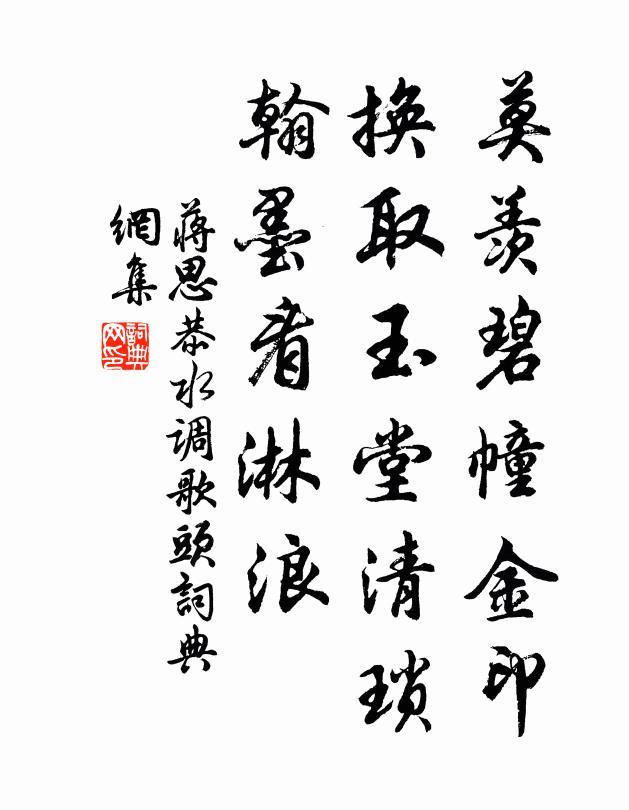 莫羨碧幢金印
換取玉堂清瑣
翰墨看淋浪
蔣思恭水调歌頭詞典
網集
詞典
网印